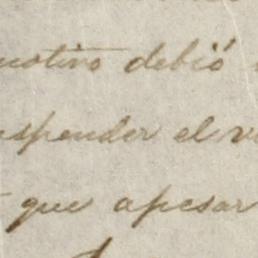 motivo debió
uspender el v
que apesar